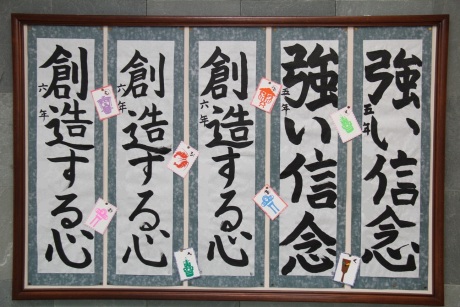 強い信念
五年
強い信念
五年
創造する心
六年
創造する心
六年
創造する心
六年